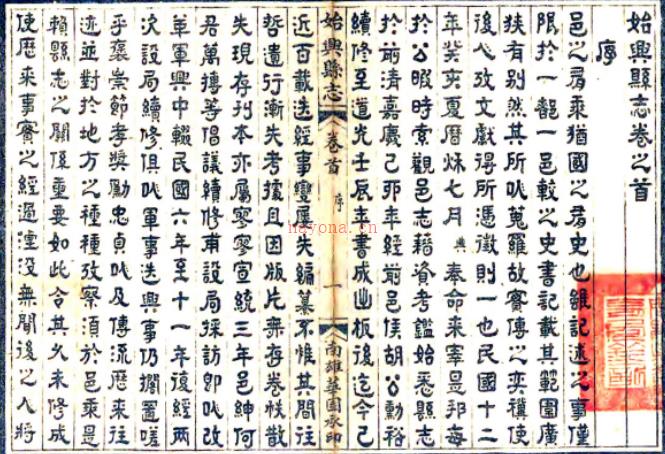 始興縣志卷之首
序
邑之有乘猶國之有史也雖記述之事僅
限於一韶一邑較之史書記載其範圍廣
狹有別然其所以蒐羅故實傳之奕禩使
後人攷文獻得所憑徵則一也民國十二
年癸亥夏曆秌七月典奉命來宰是邦每
於公暇時索觀邑志藉資考鑑始悉縣志
於前清嘉慶己卯年經前邑侯胡公勳裕
續修至道光壬辰年書成出板後迄今已
始興縣志
卷首
序
一
南雄華園承印
近百載迭經事變屢失編纂不惟其間往
哲遺行漸失考據且因版片無存卷帙散
失現存刊本亦屬寥寥宣統三年邑紳何
君萬摶等倡議續修甫設局採訪卽以改
革軍興中輟民國六年至十一年復經兩
次設局續修俱以軍事迭興事仍擱置嗟
乎褒崇節孝奬勵忠貞以及傳流歷來往
迹並對於地方之種種攷察須於邑乘是
賴縣志之關係重要如此令其久未修成
使歷來事實之經過湮没無聞後之人將
nayona.cn